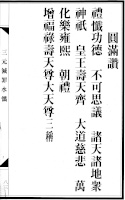 圓滿讚
禮懺功德　不可思議　諸天諸地衆
神祇　皇王壽天齊　大道慈悲　萬
化樂雍熙　朝禮
增福祿壽天尊大天尊三稱
三元滅罪水懺